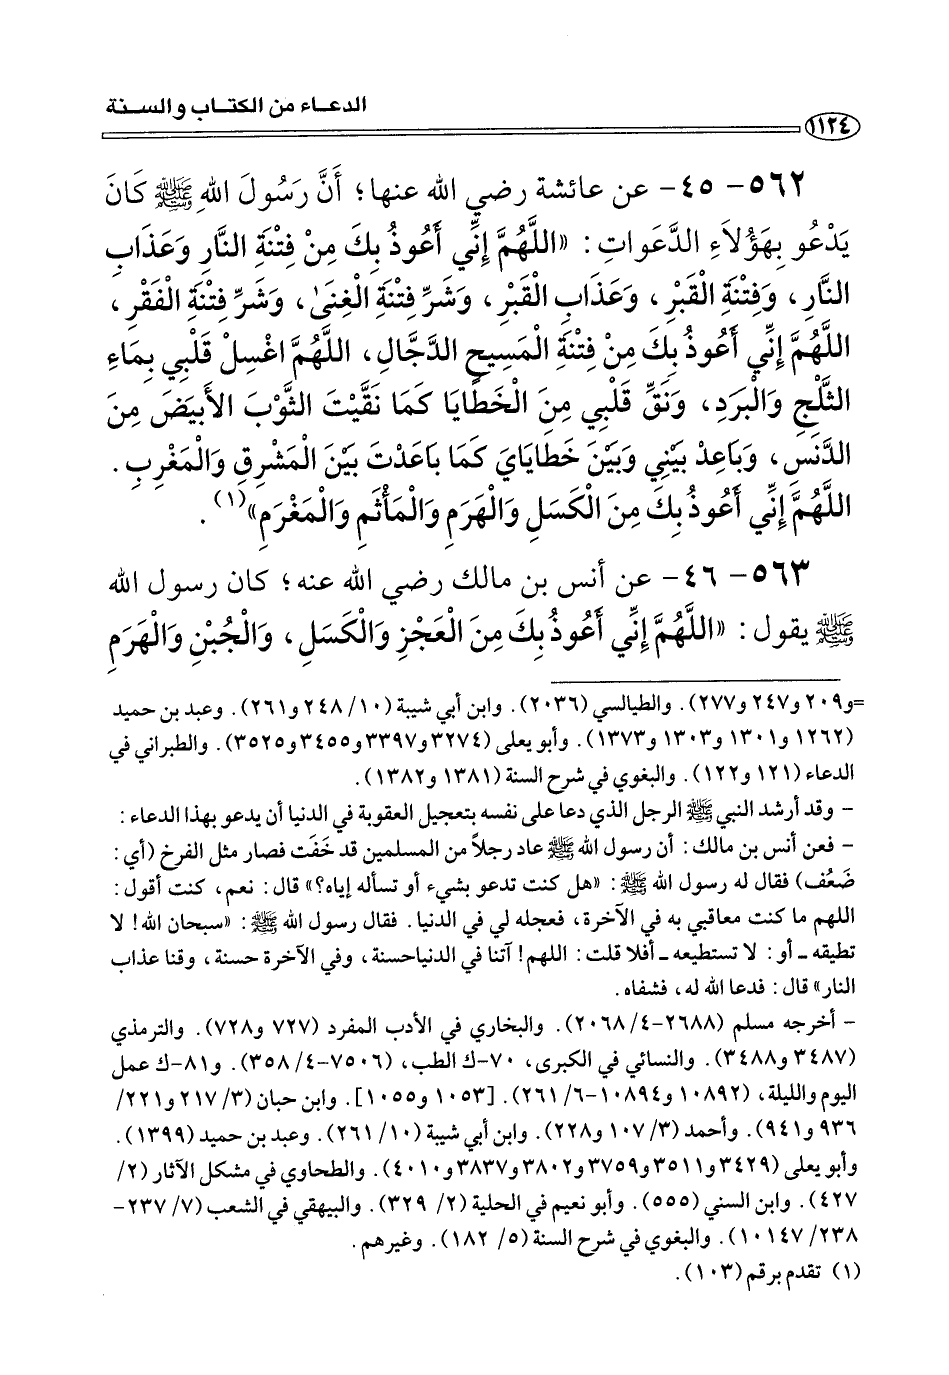 الدعاء من الكتاب والسنة
١١٢٤
٥٦٢- ٤٥- عن عائشة رضي الله عنها؛ أَنَّ رَسُولَ اللهِ ﷺ كَانَ
يَدْعُو بِهَؤُلاَءِ الدَّعَواتِ: «اللَّهُمَّ إِنِّي أَعُوذُ بِكَ مِنْ فِتْنَةِ النَّارِ وَعَذَابِ
النَّارِ، وَفِتْنَةِ القَبْرِ، وَعَذَابِ القَبْرِ، وَشَرِّ فِتْنَةِ الْغِنَىٰ، وَشَرِّ فِتْنَةِ الْفَقْرِ،
اللَّهُمَّ إِنِّي أَعُوذُ بِكَ مِنْ فِتْنَةِ المَسِيحِ الدَّجَّالِ، اللَّهُمَّ اغْسِلْ قَلْبِي بِمَاءِ
الثَّلْجِ وَالْبَرَدِ، وَنَقِّ قَلْبِي مِنَ الْخَطَايَا كَمَا نَقَّيْتَ الثَّوْبَ الأَبْيَضَ مِنَ
الدَّنَسِ، وَبَاعِدْ بَيْنِي وَبَيْنَ خَطَايَايَ كَمَا بَاعَدْتَ بَيْنَ الْمَشْرِقِ وَالْمَغْرِبِ.
اللَّهُمَّ إِنِّي أَعُوذُ بِكَ مِنَ الْكَسَلِ وَالْهَرَمِ وَالْمَأْثَمِ وَالْمَغْرَمِ»(١).
٥٦٣- ٤٦- عن أنس بن مالك رضي الله عنه؛ كان رسول الله
ﷺ يقول: «اللَّهُمَّ إِنِّي أَعُوذُ بِكَ مِنَ الْعَجْزِ وَالْكَسَلِ، وَالْجُبْنِ وَالْهَرَمِ
=و٢٠٩ و٢٤٧ و٢٧٧). والطيالسي (٢٠٣٦). وابن أبي شيبة (١٠/ ٢٤٨ و٢٦١). وعبد بن حميد
(١٢٦٢ و١٣٠١ و١٣٠٣ و١٣٧٣). وأبو يعلى (٣٢٧٤ و٣٣٩٧ و٣٤٥٥ و٣٥٢٥). والطبراني في
الدعاء (١٢١ و١٢٢). والبغوي في شرح السنة (١٣٨١ و١٣٨٢).
- وقد أرشد النبي ﷺ الرجل الذي دعا على نفسه بتعجيل العقوبة في الدنيا أن يدعو بهذا الدعاء:
- فعن أنس بن مالك: أن رسول الله ﷺ عاد رجلاً من المسلمين قد خَفَت فصار مثل الفرخ (أي:
ضَعُف) فقال له رسول الله ﷺ: «هل كنت تدعو بشيء أو تسأله إياه؟» قال: نعم، كنت أقول:
اللهم ما كنت معاقبي به في الآخرة، فعجله لي في الدنيا. فقال رسول الله ﷺ: «سبحان الله! لا
تطيقه ـ أو: لا تستطيعه ـ أفلا قلت: اللهم! آتنا في الدنيا حسنة، وفي الآخرة حسنة، وقنا عذاب
النار» قال: فدعا الله له، فشفاه.
- أخرجه مسلم (٢٦٨٨-٤/ ٢٠٦٨). والبخاري في الأدب المفرد (٧٢٧ و٧٢٨). والترمذي
(٣٤٨٧ و٣٤٨٨). والنسائي في الكبرى، ٧٠-ك الطب، (٧٥٠٦-٤/ ٣٥٨). و٨١-ك عمل
اليوم والليلة، (١٠٨٩٢ و١٠٨٩٤-٦/ ٢٦١). [١٠٥٣ و١٠٥٥]. وابن حبان (٣/ ٢١٧ و٢٢١/
٩٣٦ و٩٤١). وأحمد (٣/ ١٠٧ و٢٢٨). وابن أبي شيبة (١٠/ ٢٦١). وعبد بن حميد (١٣٩٩).
وأبو يعلى (٣٤٢٩ و٣٥١١ و٣٧٥٩ و٣٨٠٢ و٣٨٣٧ و٤٠١٠). والطحاوي في مشكل الآثار (٢/
٤٢٧). وابن السني (٥٥٥). وأبو نعيم في الحلية (٢/ ٣٢٩). والبيهقي في الشعب (٧/ ٢٣٧-
٢٣٨/ ١٠١٤٧). والبغوي في شرح السنة (٥/ ١٨٢). وغيرهم.
(١) تقدم برقم (١٠٣).